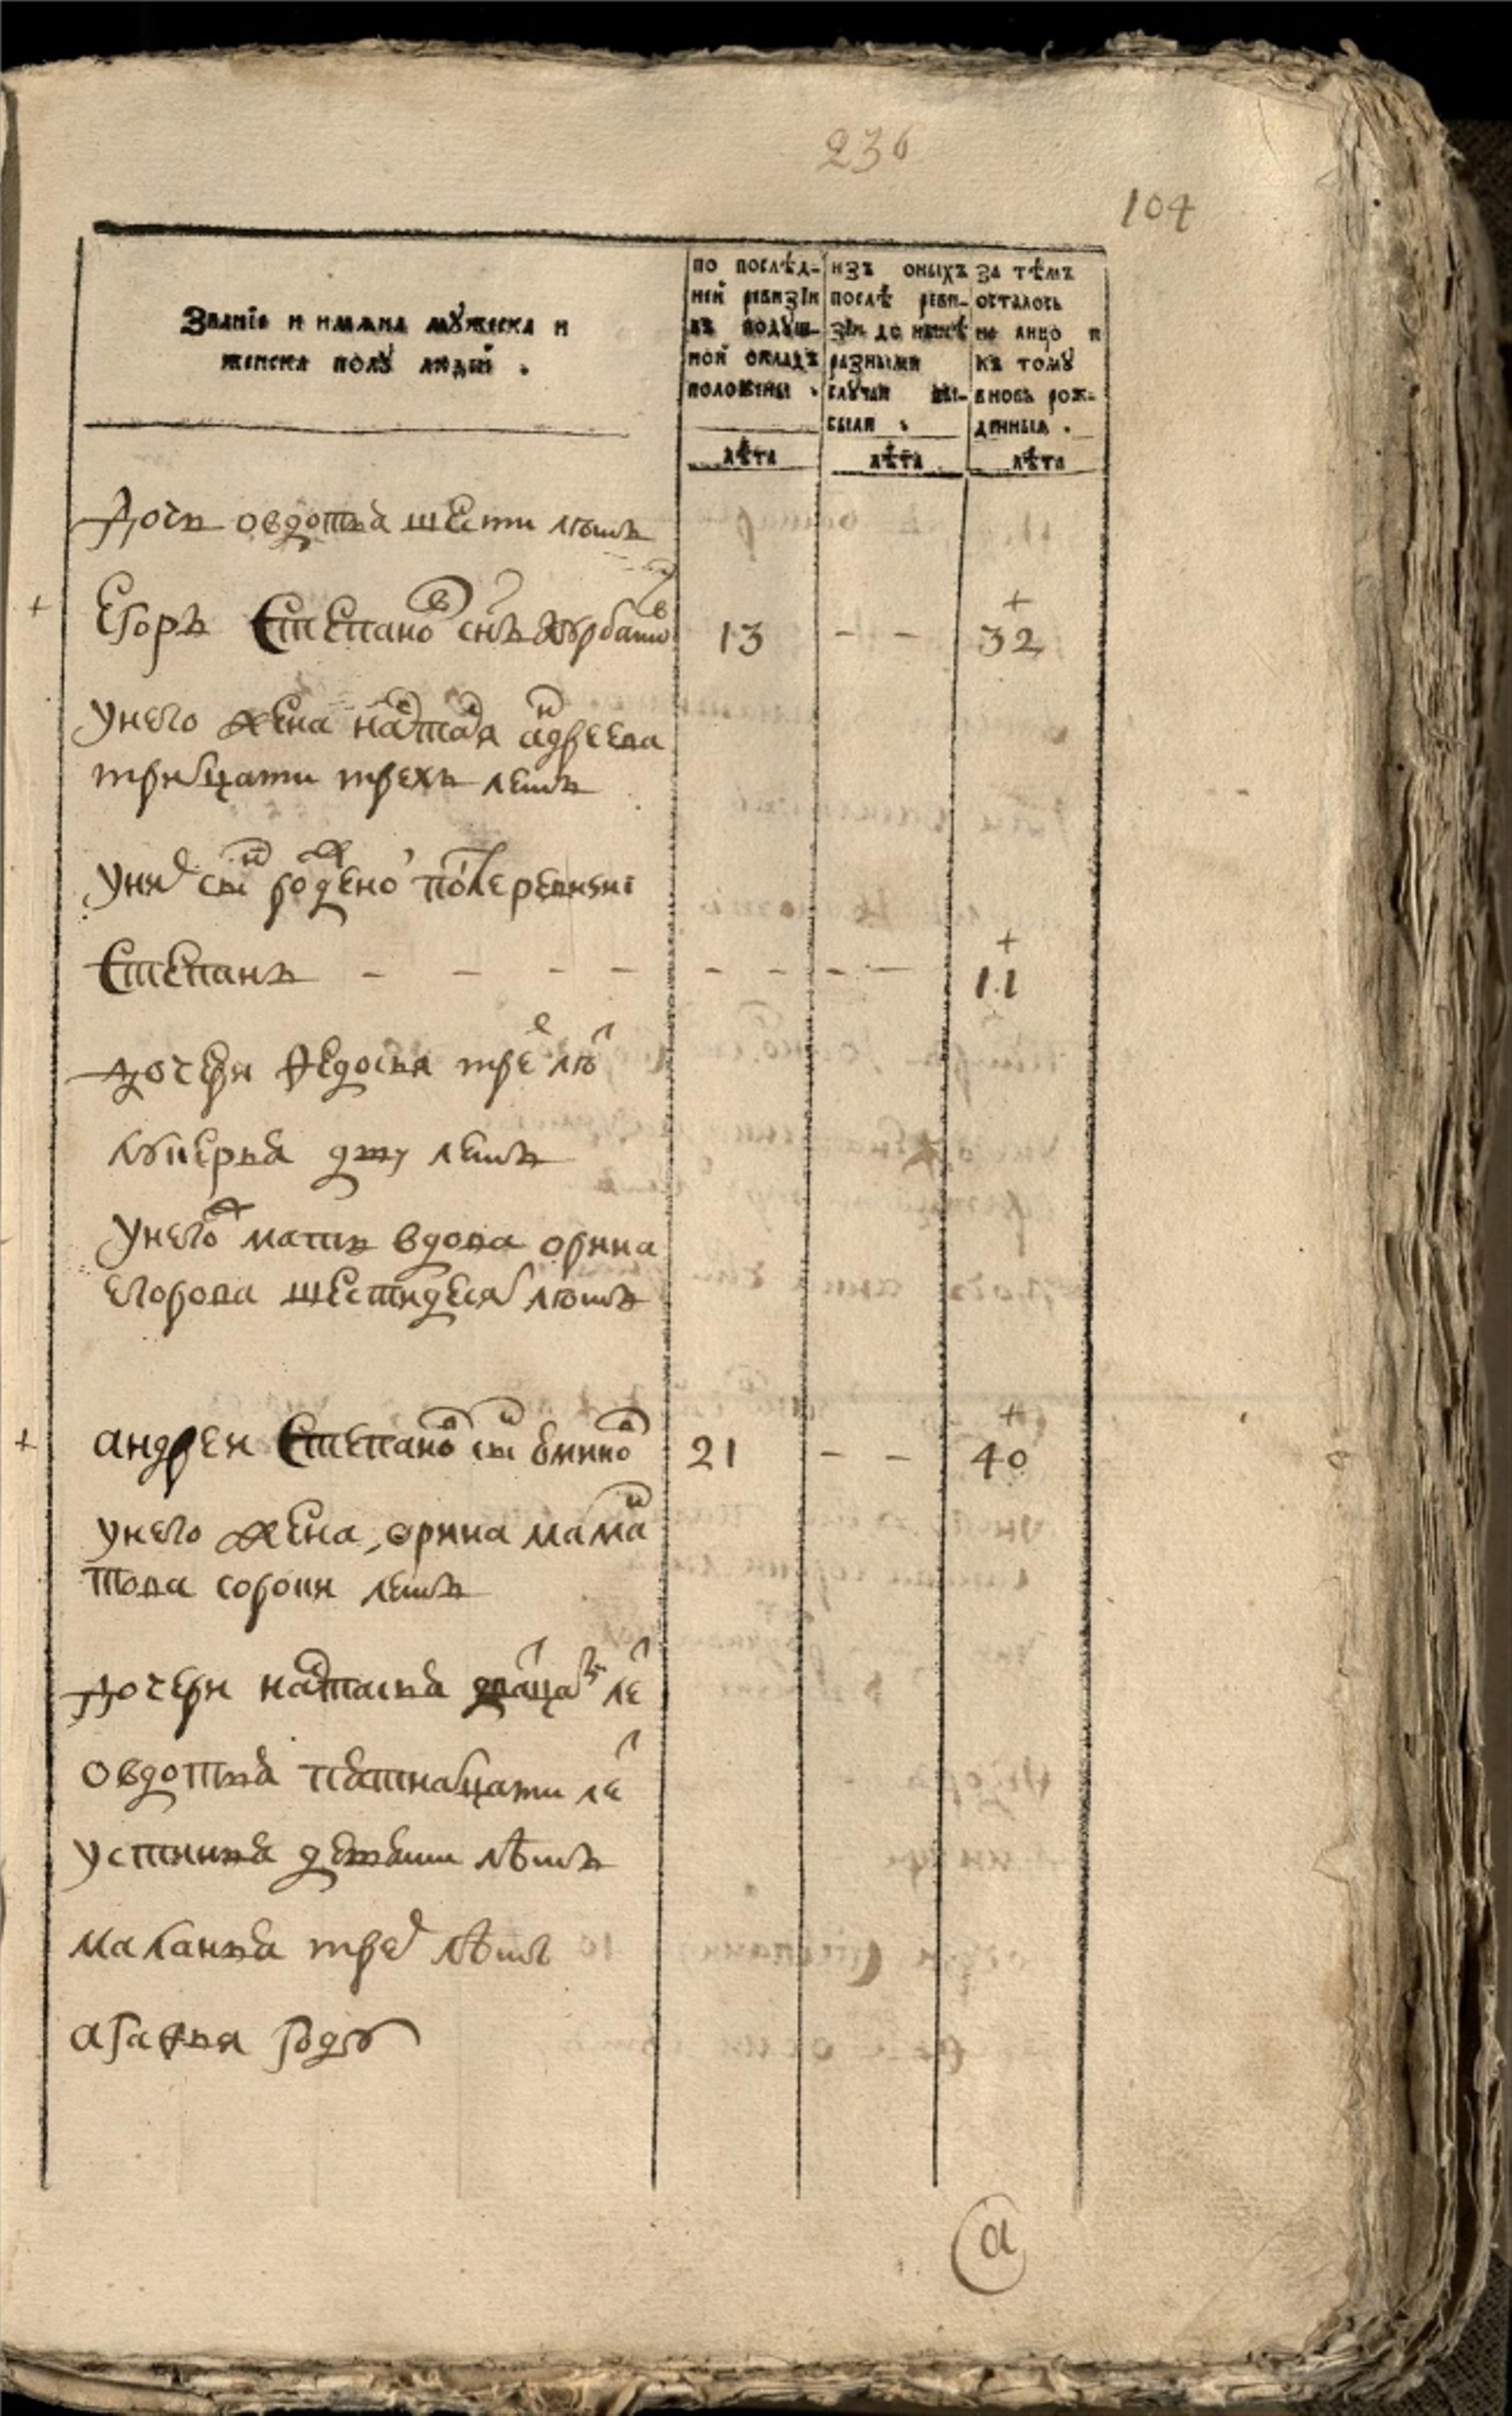 236
104
Званїе и имѧна мꙋжеска и
женска полꙋ людей .
по послѣд-
ней ревизїи
въ подꙋш-
ной окладъ
положены .
изъ оныхъ
послѣ реви-
зїи до нынѣ
разными
слꙋчаи вы-
были .
за тѣмъ
осталось
на лицо и
къ томꙋ
вновь рож-
денныѧ .
лѣта лѣта лѣта
дочь овдотья шести летъ
+ Егоръ Степановъ снъ 13 - - + 32
у него жена андреева
тритцати трехъ летъ
у них сын рожденои после ревизиі
Степанъ - - - - - - - - + 11
дочери Федосья трех лет
лукерья дву летъ
у негож мать вдова орина
егорова шестидесят летъ
+ андреи Степанов сын 21 - - + 40
у него жена орина маман
това сорока летъ
дочери настасья дватцать лет
овдотья пятнатцати лет
устинья девяти лѣтъ
маланья трех лѣтъ
агафья году
а